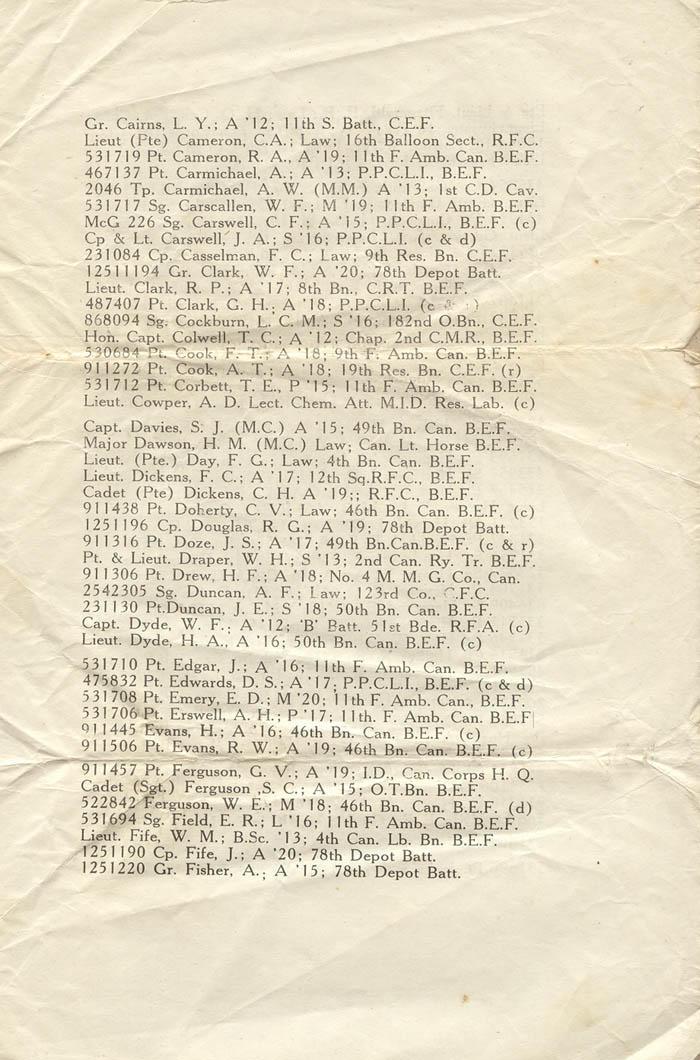 Gr. Cairns, L. Y.; A '12; 11th S. Batt., C.E.F.
Lieut (Pte) Cameron, C.A.; Law; 16th Balloon Sect., R.F.C.
531719 Pt. Cameron, R. A., A '19; 11th F. Amb. Can. B.E.F.
467137 Pt. Carmichael, A.; A '13; P.P.C.L.I., B.E.F.
2046 Tp. Carmichael, A. W. (M.M.) A '13; 1st C.D. Cav.
531717 Sg. Carscallen, W. F.; M '19; 11th F. Amb. B.E.F.
McG 226 Sg. Carswell, C. F.; A '15; P.P.C.L.I., B.E.F. (c)
Cp & Lt. Carswell, J. A.; S '16; P.P.C.L.I. (c & d)
231084 Cp. Casselman, F. C.; Law; 9th Res. Bn. C.E.F.
12511194 Gr. Clark, W. F.; A '20; 78th Depot Batt.
Lieut. Clark, R. P.; A '17; 8th Bn., C.R.T. B.E.F.
487407 Pt. Clark, G. H.; A '18; P.P.C.L.I. (c &
868094 Sg. Cockburn, L. C. M.; S '16; 182nd O.Bn., C.E.F.
Hon. Capt. Colwell, T. C.; A '12; Chap. 2nd C.M.R., B.E.F.
530684 Pt. Cook, F. T.; A '18; 9th F. Amb. Can. B.E.F.
911272 Pt. Cook, A. T.; A '18; 19th Res. Bn. C.E.F. (r)
531712 Pt. Corbett, T. E., P '15; 11th F. Amb. Can. B.E.F.
Lieut. Cowper, A. D. Lect. Chem. Att. M.I.D. Res. Lab. (c)
Capt. Davies, S. J. (M.C.) A '15; 49th Bn. Can. B.E.F.
Major Dawson, H. M. (M.C.) Law; Can. Lt. Horse B.E.F.
Lieut. (Pte.) Day, F. G.; Law; 4th Bn. Can. B.E.F.
Lieut. Dickens, F. C.; A '17; 12th Sq.R.F.C., B.E.F.
Cadet (Pte) Dickens, C. H. A '19;; R.F.C., B.E.F.
911438 Pt. Doherty, C. V.; Law; 46th Bn. Can. B.E.F. (c)
1251196 Cp. Douglas, R. G.; A '19; 78th Depot Batt.
911316 Pt. Doze, J. S.; A '17; 49th Bn.Can.B.E.F. (c & r)
Pt. & Lieut. Draper, W. H.; S '13; 2nd Can. Ry. Tr. B.E.F.
911306 Pt. Drew, H. F.; A '18; No. 4 M. M. G. Co., Can.
2542305 Sg. Duncan, A. F.; Law; 123rd Co., C.F.C.
231130 Pt.Duncan, J. E.; S '18; 50th Bn. Can. B.E.F.
Capt. Dyde, W. F.; A '12; 'B' Batt. 51st Bde. R.F.A. (c)
Lieut. Dyde, H. A., A '16; 50th Bn. Can. B.E.F. (c)
531710 Pt. Edgar, J.; A '16; 11th F. Amb. Can. B.E.F.
475832 Pt. Edwards, D. S.; A '17; P.P.C.L.I., B.E.F. (c & d)
531708 Pt. Emery, E. D.; M '20; 11th F. Amb. Can., B.E.F.
531706 Pt. Erswell, A. H.; P '17; 11th. F. Amb. Can. B.E.F
911445 Evans, H.; A '16; 46th Bn. Can. B.E.F. (c)
911506 Pt. Evans, R. W.; A '19; 46th Bn. Can. B.E.F. (c)
911457 Pt. Ferguson, G. V.; A '19; I.D., Can. Corps H. Q.
Cadet (Sgt.) Ferguson ,S. C.; A '15; O.T.Bn. B.E.F.
522842 Ferguson, W. E.; M '18; 46th Bn. Can. B.E.F. (d)
531694 Sg. Field, E. R.; L '16; 11th F. Amb. Can. B.E.F.
Lieut. Fife, W. M.; B.Sc. '13; 4th Can. Lb. Bn. B.E.F.
1251190 Cp. Fife, J.; A '20; 78th Depot Batt.
1251220 Gr. Fisher, A.; A '15; 78th Depot Batt.